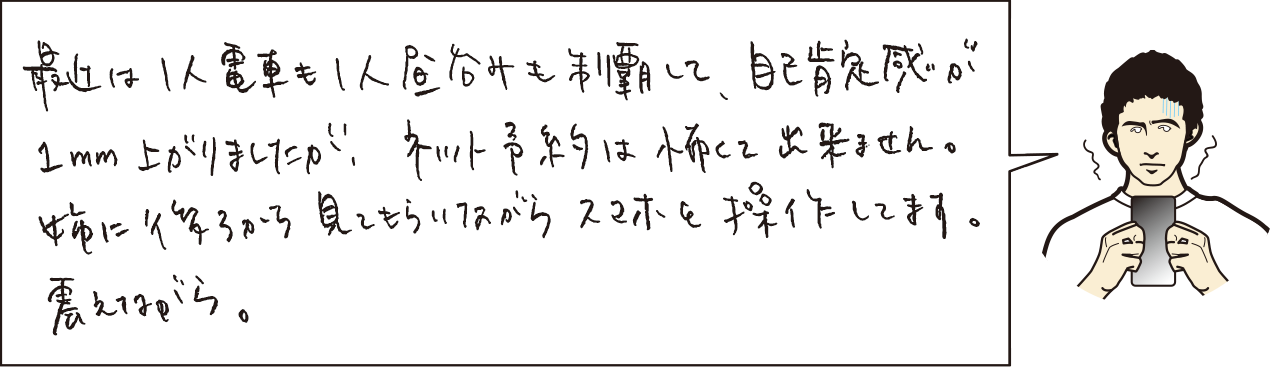 最近は1人電車も1人昼呑みも制覇して、自己肯定感が
1mm上がりましたが、ネット予約は怖くて出来ません。
姉に後ろから見てもらいながらスマホを操作してます。
震えながら。